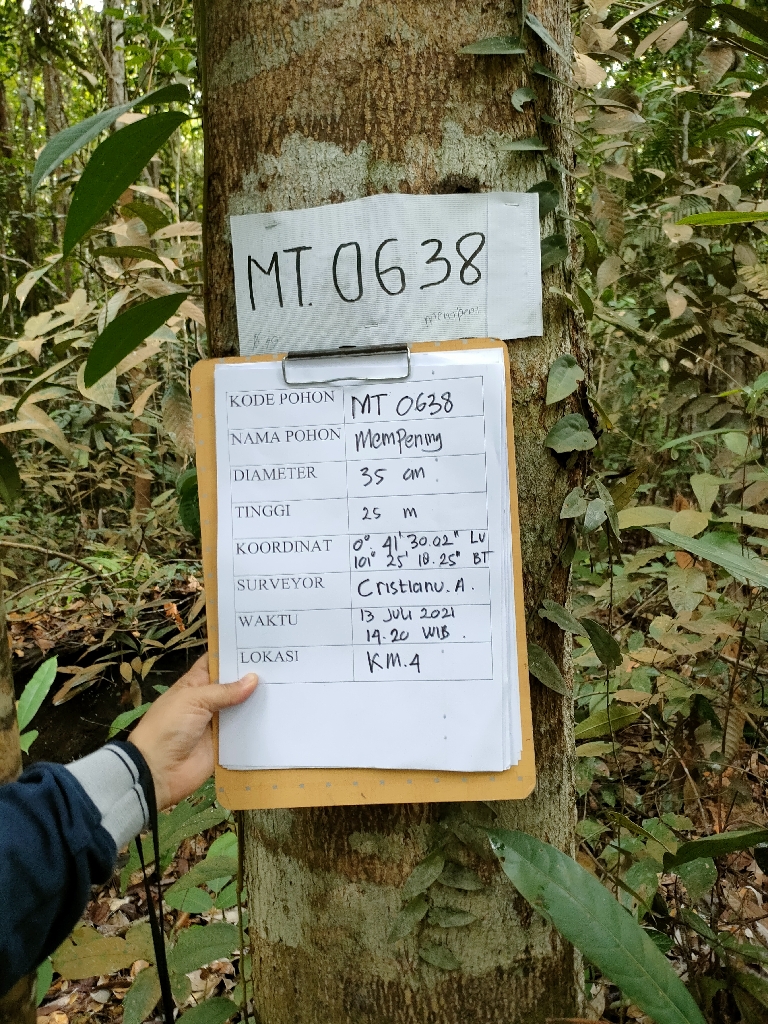 MT. 0638
KODE POHON MT 0638
NAMA POHON Mempening
DIAMETER 35 cm
TINGGI 25 m
KOORDINAT 0° 41' 30.02" LU
101° 25' 18.25" BT
SURVEYOR Cristianu. A.
WAKTU 13 Juli 2021
14.20 WIB.
LOKASI KM.4